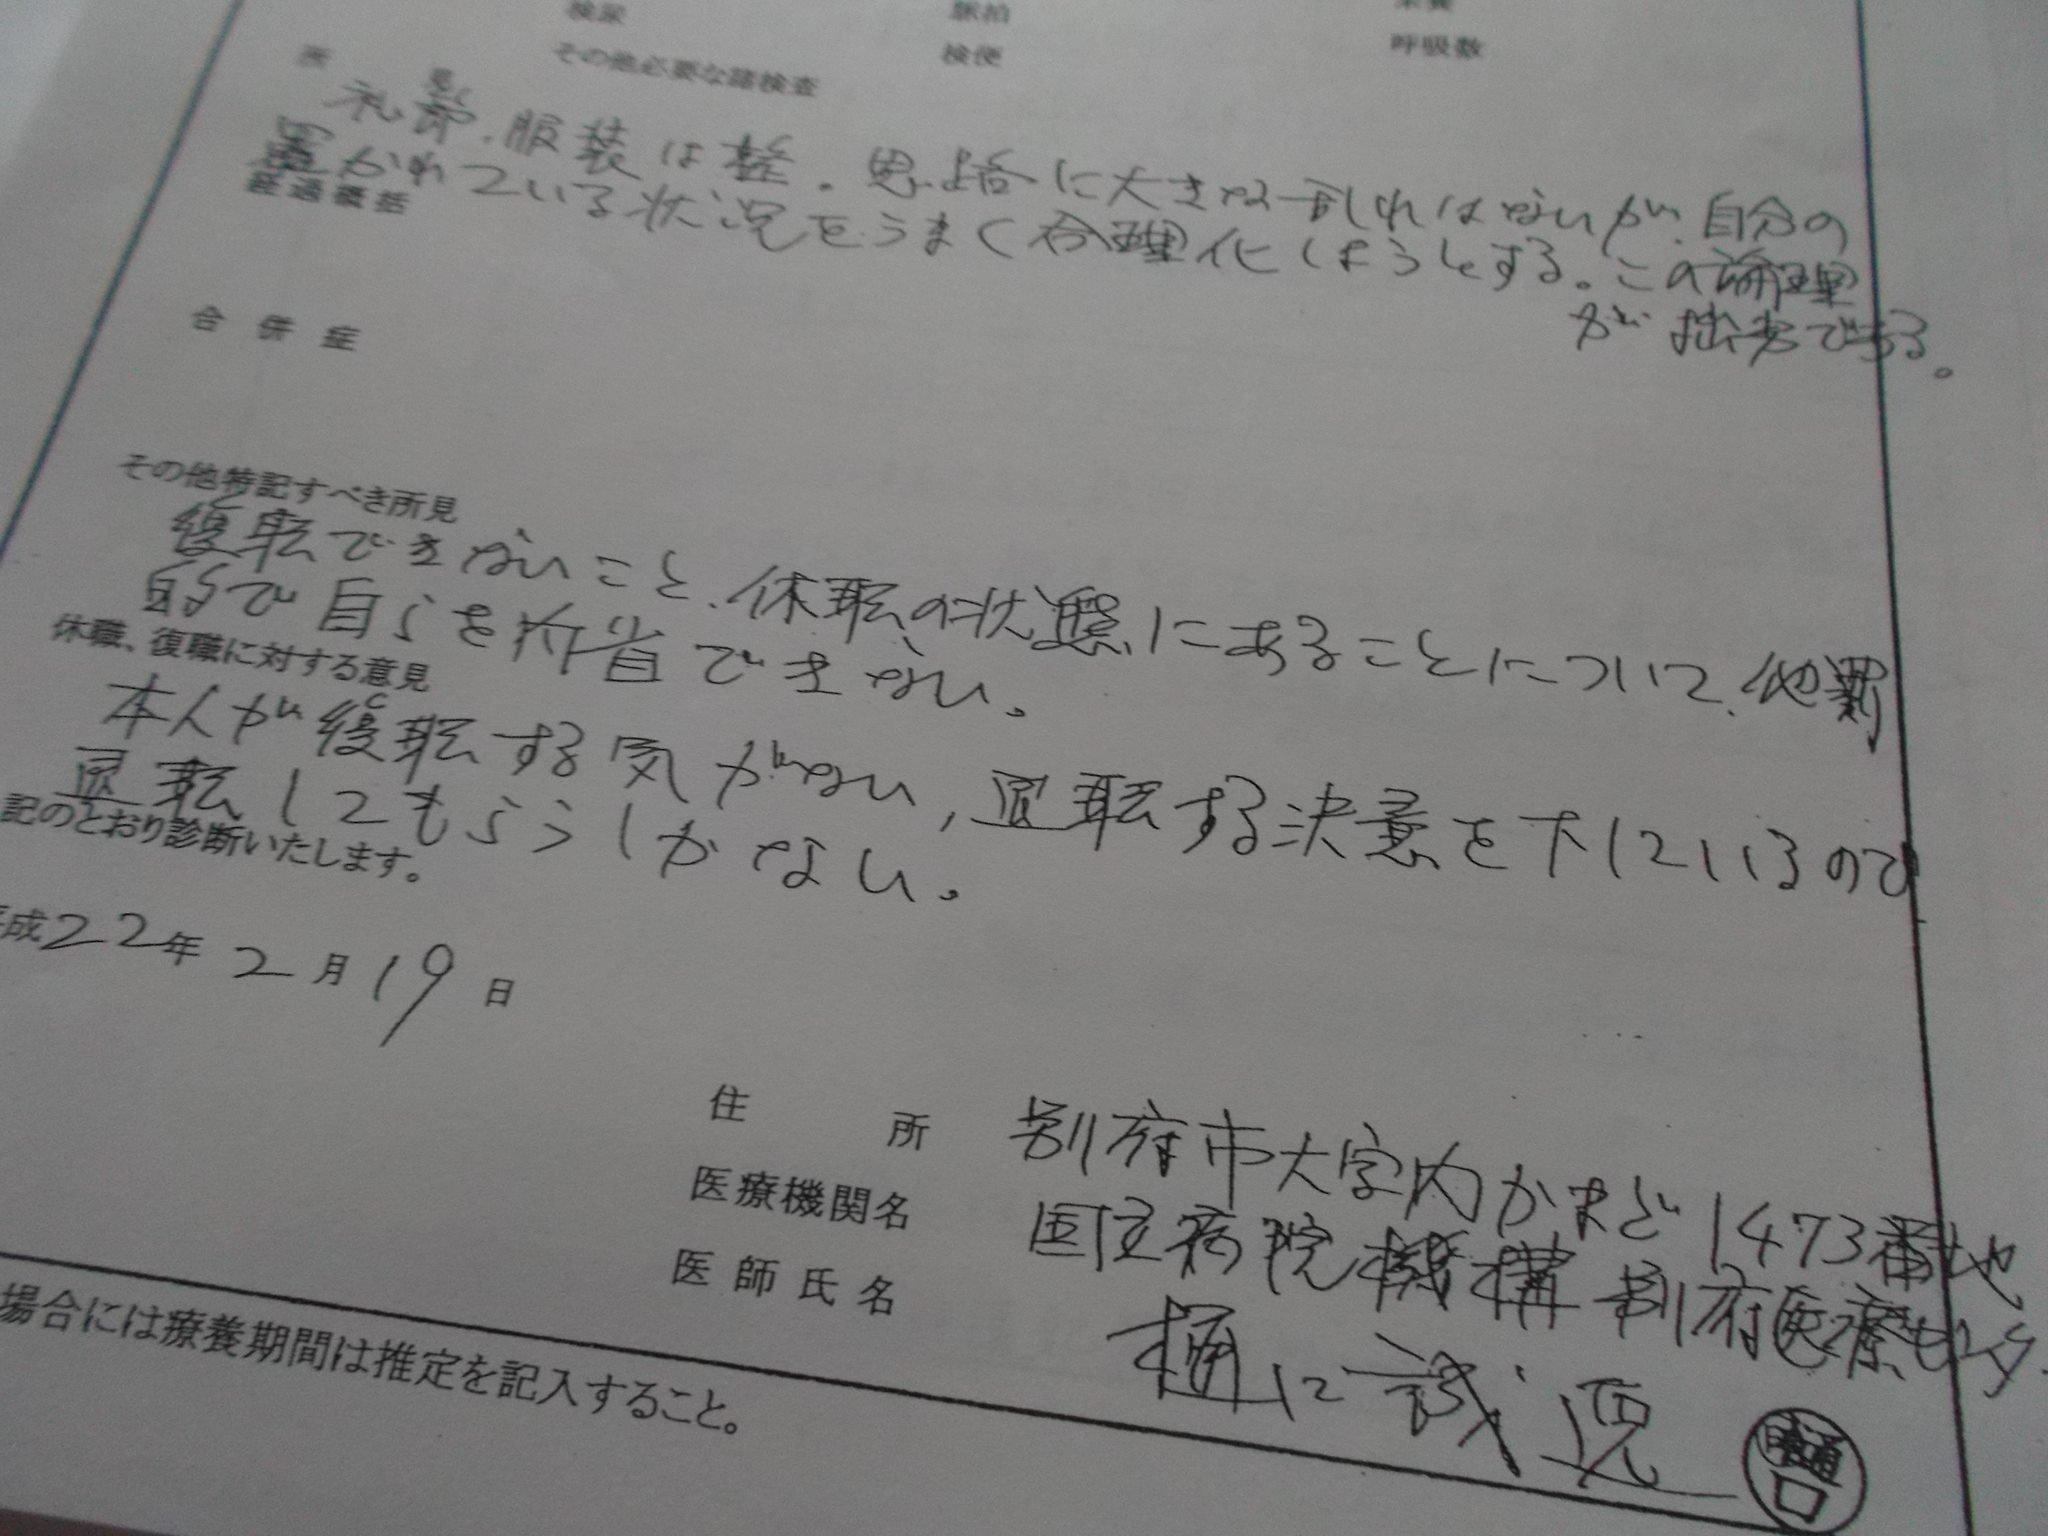 検尿 脈拍 栄養
その他必要な諸検査 検便 呼吸数
所見
礼節、服装は整。思路に大きな乱れはないが、自分の
置かれている状況をうまく合理化しようとする。この論理
が拙劣である。
経過概括
合併症
その他特記すべき所見
復職できないこと、休職の状態にあることについて、他罰
的で自らを内省できない。
休職、復職に対する意見
本人が復職する気がない、退職する決意を下しているので
退職してもらうしかない。
記のとおり診断いたします。
平成22年2月19日
住所 別府市大字内かまど1473番地
医療機関名 国立病院機構 別府医療センター
医師氏名 樋口
場合には療養期間は推定を記入すること。